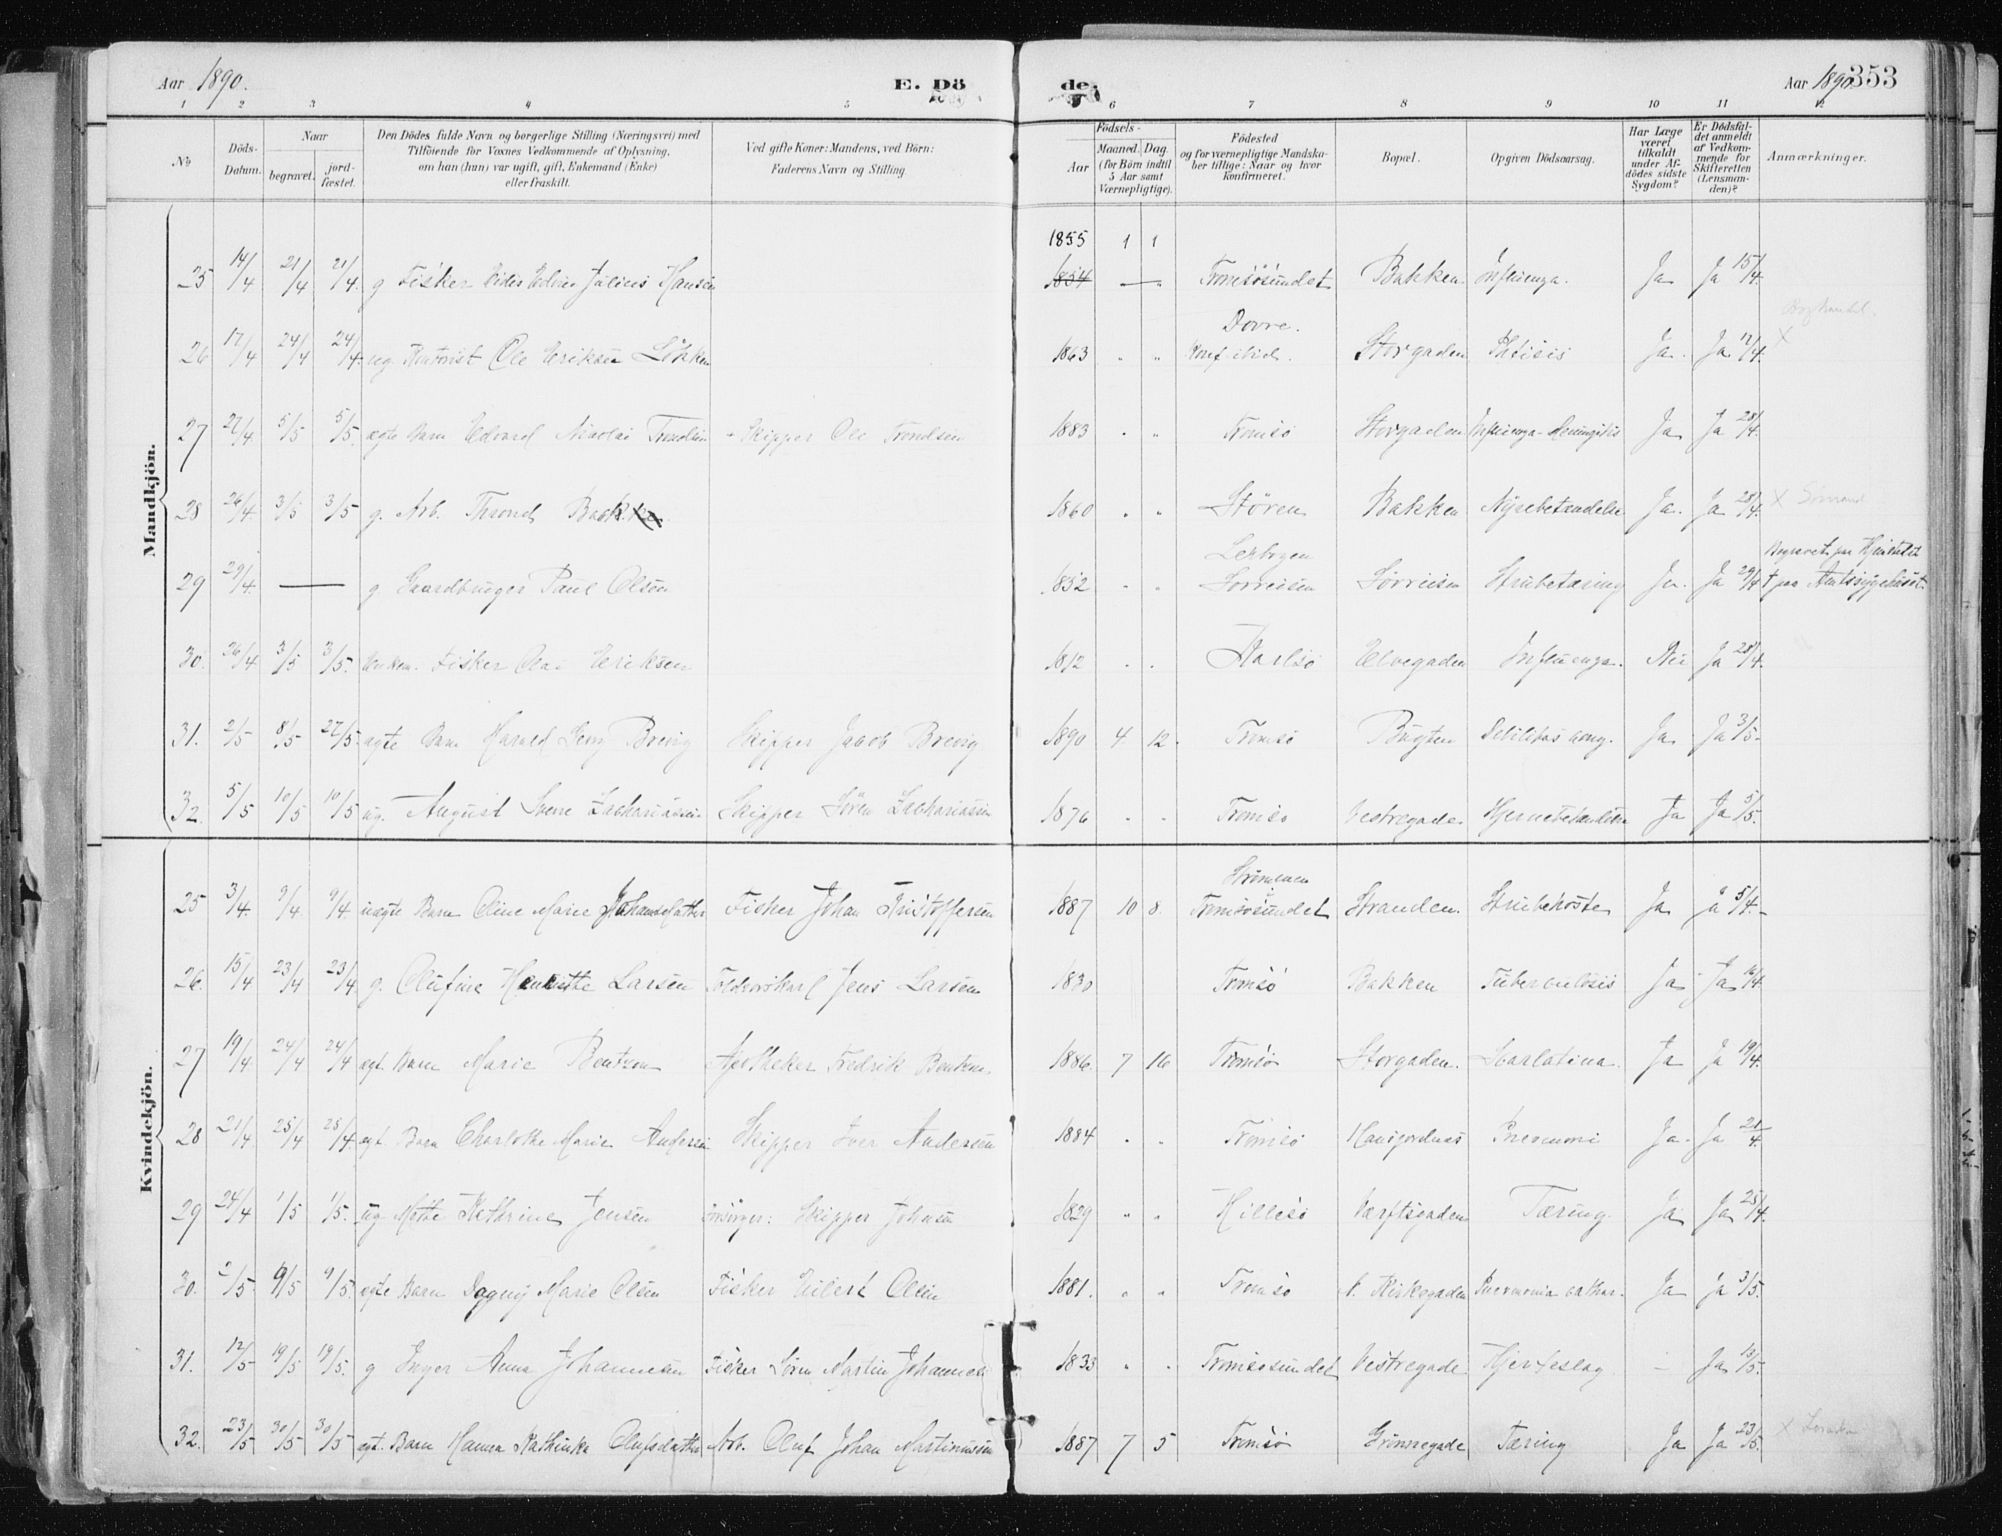 Aar 1890. E. Dö de. Aar 1890. 353
1 2 3 4 5 6 7 8 9 10 11 12
No
Döds-Datum.
Naar
begravet.
jord-fæstet.
Den Dödes fulde Navn og borgerlige Stilling (Næringsvei) med
Tilföiende for Voxnes Vedkommende af Oplysning,
om han (hun) var ugift, gift, Enkemand (Enke)
eller fraskilt.
Ved gifte Koner: Mandens, ved Börn:
Faderens Navn og Stilling.
Födsels-
Aar
Maaned. Dag.
(for Börn indtil
5 Aar samt
Værnepligtige).
Födested
og for værnepligtige Mandska-
ber tillige: Naar og hvor
konfirmeret.
Bopæl.
Opgiven Dödsaarsag.
Har Læge
været
tilkaldt
under Af-
dödes sidste
Sygdom?
Er Dödsfal-
det anmeldt
af Vedkom-
mende for
Skifteretten
(Lensman-
den)?
Anmærkninger.
Mandkjön.
1855 1 1
25 14/4 21/4 21/4. g Fisker Julius Hansen 1854 — Tromsösundet Bakken. Influenza. Ja Ja 15/4.
Dovre.
26 17/4 24/4 24/4. ug. Ole Eriksen Lökken 1863 " " Konf. ibid. Storgaden Phtisis Ja. Ja 17/4. X
27 27/4. 5/5 5/5. ægte Barn Edvard Nicolai Trondsen Skipper Ole Trondsen 1883 " " Tromsö Storgaden Influenza-Meningitis Ja Ja 28/4.
28 26/4. 3/5 3/5 g. Arb. Thrond Bakken 1860 " " Stören Bakken Nyrebetændelse Ja. Ja 28/4. X
29 29/4. — g. Gaardbruger Paul Olsen 1852 " " Sorreisen Sörreisen Strubetæring Ja. Ja 29/4 Begravet paa Hjemstedet
† paa Amtssygehuset.
30. 26/4 3/5 3/5. Enkem. Fisker Olai Eriksen 1812 " " Karlsö Elvegaden Influenza. Nei Ja 28/4.
31. 2/5 8/5 27/5. ægte Barn Harald Brevig Skipper Jacob Brevig 1890 4 12. Tromsö Bugten Debilitas cong. Ja Ja 3/5.
32. 5/5 10/5 10/5 ug. August Sverre Zachariassen Skipper Sören Zachariassen 1876 " " Tromsö Vestregade. Hjernebetændelse Ja Ja 5/5.
Kvindekjön.
25 3/4. 9/4. 9/4 uægte Barn Oline Marie Johansdatter Fisker Johan Kristoffersen 1887 10 8. Tromsösundet Stranden. Strubehoste Ja Ja 5/4.
26. 15/4 23/4 23/4 g. Olufine Henriette Larsen Toldrorskarl Jens Larsen 1830 Tromsö Bakken Tuberculosis Ja Ja 16/4.
27 19/4 24/4 24/4 egt. Barn Marie Bentzon Apotheker Fredrik Bentzon. 1886. 7 16 Tromsö Storgaden. Scarlatina. Ja Ja 19/4.
28 21/4. 25/4 25/4. egt. Barn Charlotte Marie Andersen Skipper Iver Andersen 1884 " " Tromsö Hansjordnæs Pnevmoni Ja. Ja 21/4.
29 24/4 1/5 1/5. ug Mette Kathrine Jensen Forsörger: Skipper Johnsen 1829 " " Hillesö Værftsgaden Tæring. Ja Ja 25/4.
30. 2/5. 9/5 9/5. egte Barn Dagny Marie Olsen Fisker Eilert Olsen 1881. " " Tromsö N. Kirkegaden Pnevmonia cathar. Ja Ja 3/5.
31. 12/5 19/5 19/5. g Inger Anna Johannesen Fisker Sören Martin Johannesen 1833 " " Tromsösundet Vestregade. Hjerteslag. — Ja 13/5.
32. 23/5 30/5 30/5 egt. Barn Hanna Kathinka Olufsdatter Arb. Oluf Johan Martinussen 1887 7 5 Tromsö Grönnegade Tæring Ja Ja 23/5. X